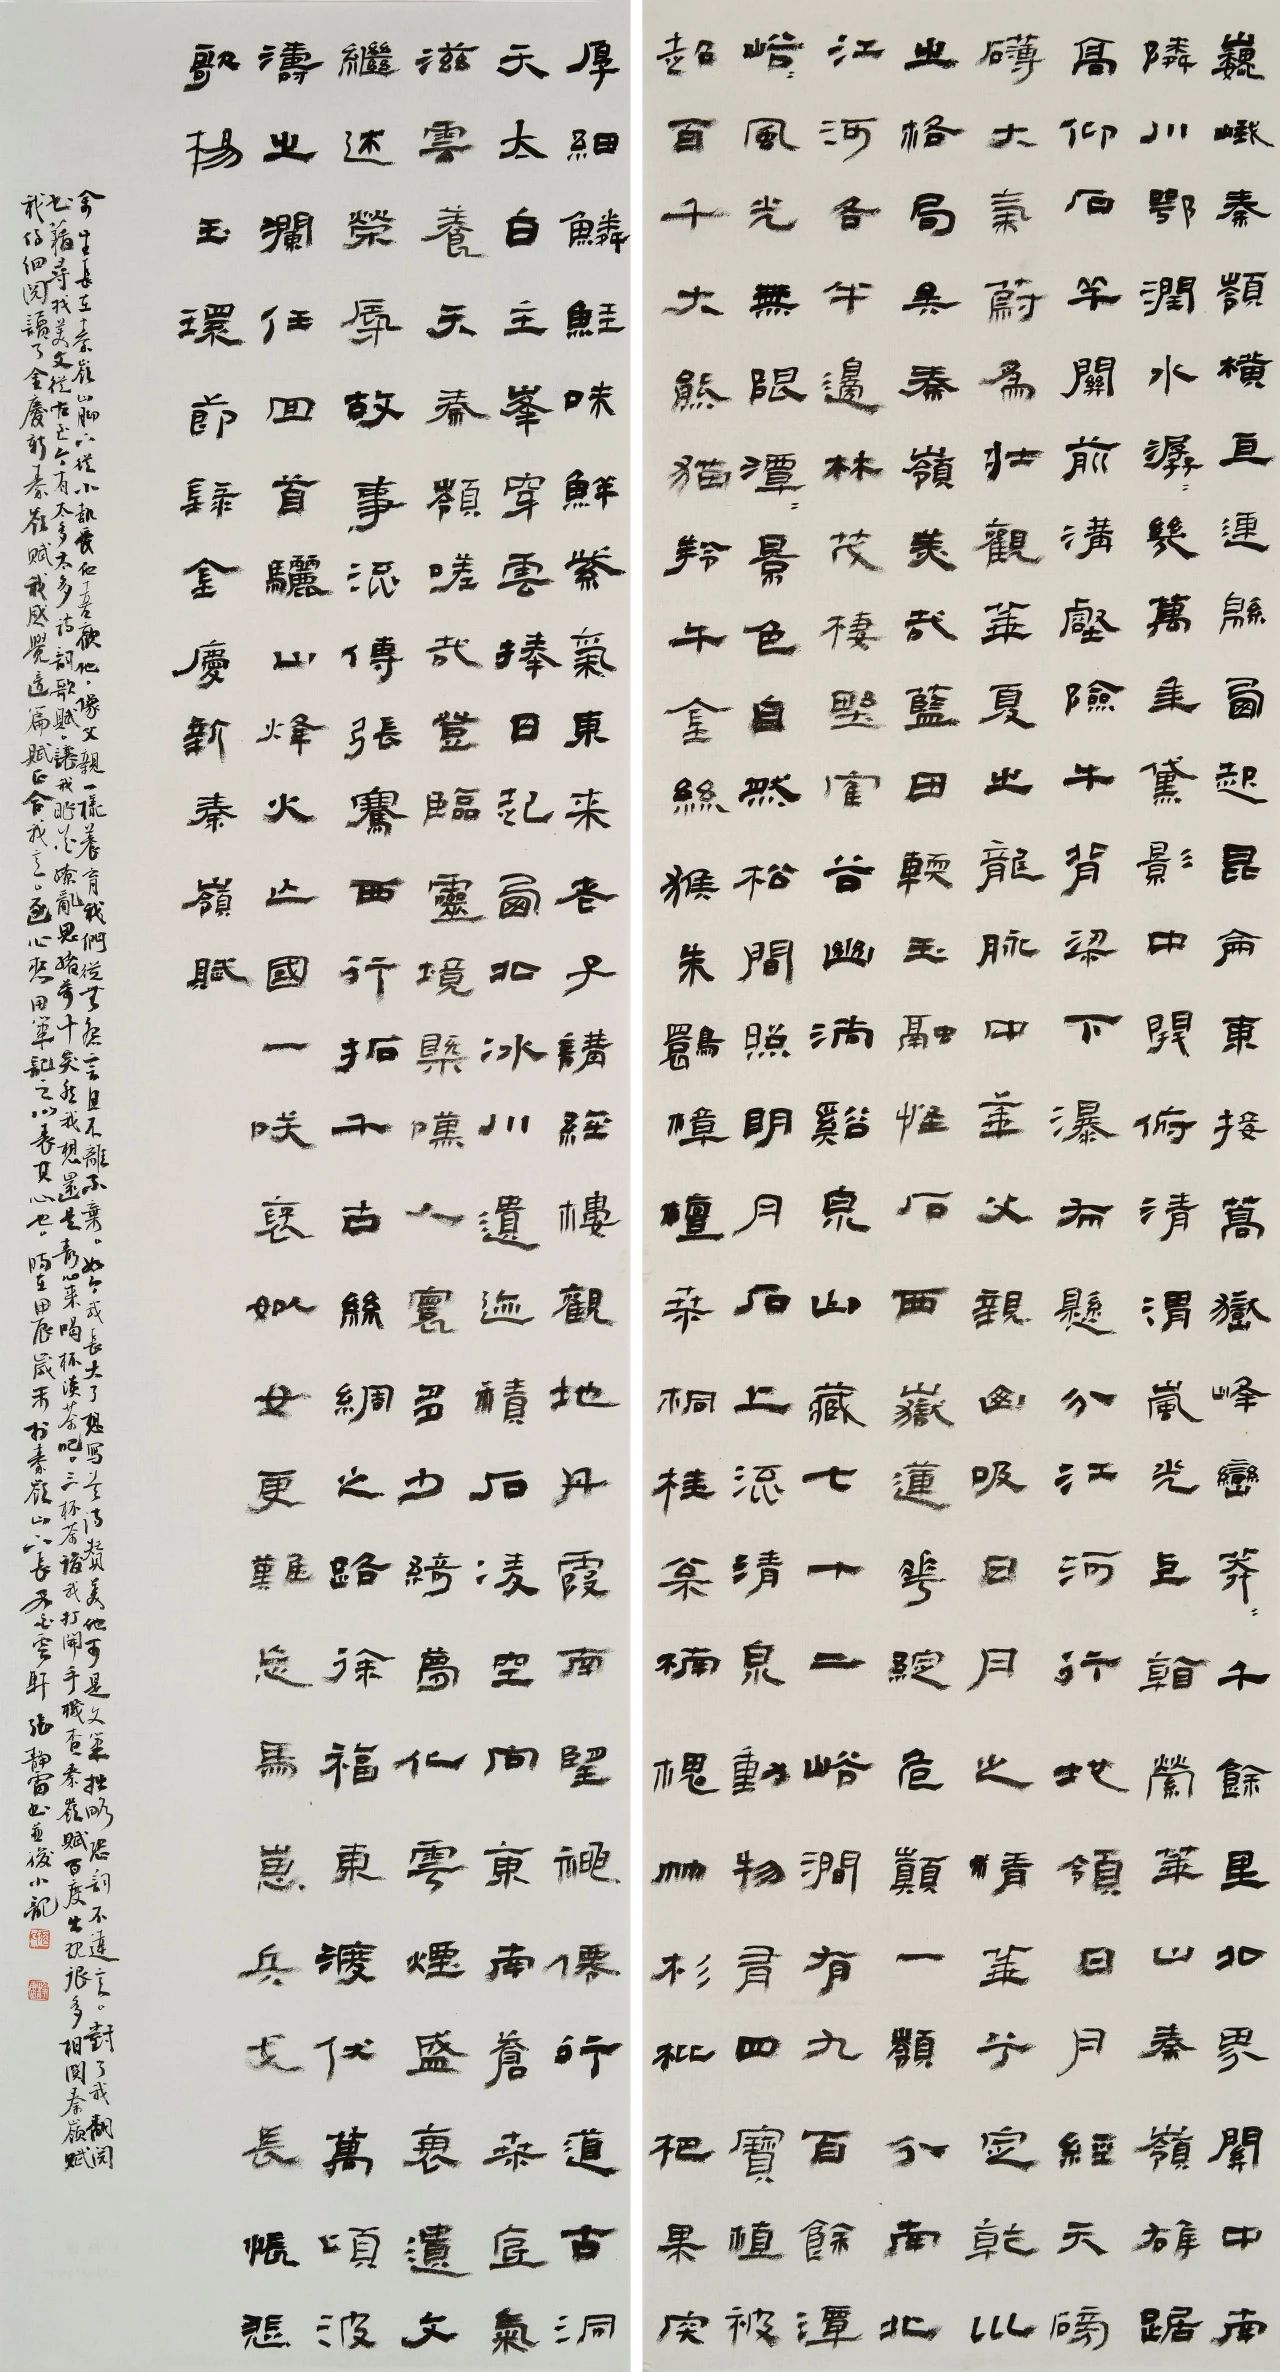 巍峨秦嶺橫亘連緜西起昆侖東接蒿嶽峰巒莽莽千餘里北界關中南
隣川鄂潤水潺潺幾萬重黛影中開俯清渭嵐光上翰縈華山秦嶺雄踞
高仰石羊關前溝壑險牛背梁下瀑布懸分江河行地領日月經天磅
礴大氣蔚為壯觀華夏之龍脉中華父親山吸日月之精華兮定乾坤
之格局具秦嶺美哉藍田輭玉融怪石西嶽蓮花總危巔一嶺分南北
江河各半邊林茂棲野寉谷幽淌谿泉山藏七十二峪澗有九百餘潭
峪峪風光無限潭潭景色自然松間照明月石上流清泉動物有四寶植被
超百千大熊猫羚牛金絲猴朱鹮樟檀桑桐桂榮楠槐竹杉枇杷果突
厚細鱗鮭味鮮紫氣東来老子講經樓觀地丹霞南望禪儒行道古洞
天太白主峯穿雲捧日起西北冰川遺迹積石凌空向東南蒼桑宜氣
滋雲養天秦嶺嗟哉登臨靈境縣嘆人寰多少綺夢化雲煙盛衰遺文
繼述榮辱故事流傳張騫西行拓千古絲綢之路徐福東渡伏萬頃波
濤之瀾任回首驪山烽火止國一咲褒姒女更難忘馬嵬兵戈長悵悲
歌楊玉環節録金慶新秦嶺賦
余生長在秦嶺山脚下從小就愛他喜歡他像父親一樣養育我們從無怨言且不離不棄如今我長大了想寫首詩贊美他可是文筆拙略恐詞不達意對了我翻閱
書籍尋找美文從古至今有太多太多詩詞歌賦讓我眼花繚亂思緒萬千突然我想還是静心来喝杯淡茶吧三杯茶後我打開手機查秦嶺賦百度出現很多相關秦嶺賦
我仔細閱讀了金慶新秦嶺賦我感覺這篇賦正合我意遂心熱用筆記之以表其心也時在甲辰歲末於秦嶺山下長安雲軒張静雷書並後小記